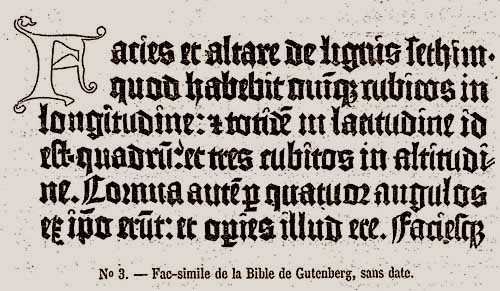 Facies et altare de lignis sethim·
quod habebit quīqꝫ cubitos in
longitudine: ⁊ totidē in latitudine id
est·quadrū: et tres cubitos in altitudi⸗
ne. Cornua autē ꝑ quatuor angulos
ex ip̄o erūt: et oꝑies illud ere. Faciesqꝫ
Nº 3. — Fac-simile de la Bible de Gutenberg, sans date.